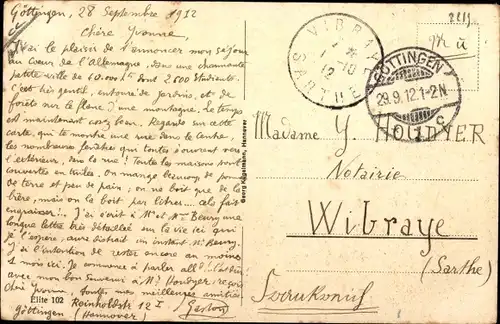 Göttingen, 28 Septembre 1912
Chère Yvonne,
J'ai le plaisir de t'annoncer mon séjour
au Cœur de l'Allemagne, dans une charmante
petite ville de 40.000 hts dont 2500 étudiants.
C'est très gentil, entouré de jardins, et de
forêts sur le flanc d'une montagne. Le temps
est maintenant assez beau. Regarde sur cette
carte, qui te montre une rue dans le centre,
les nombreuses fenêtres qui toutes s'ouvrent vers
l'extérieur, dans la rue! Toutes les maisons sont
couvertes en tuiles. On mange beaucoup de pommes
de terre et peu de pain; on ne boit que de la
bière, mais on la boit par litres.... cela fait
engraisser!.. J'ai écrit à Mr et Me Beury une
longue lettre très détaillée sur la vie ici qui
je l'espère, aura distrait un instant Mr Beury.
J'ai l'intention de rester encore au moins
1 mois ici. Je commence à parler all.d!
avec mon bon souvenir à Mr Houdyer, reçois
chère Yvonne, toutes mes meilleures amitiés
Gaston
Elite 102 Reinholdstr 12 I
Göttingen (Hannover)
Georg Kugelmann, Hannover
VIBRAYE
1 -10
12
SARTHE
GÖTTINGEN
29.9.12.1-2N
1 c
2219
Madame Y. HOUDYER
Notairie
Wibraye
(Sarthe)